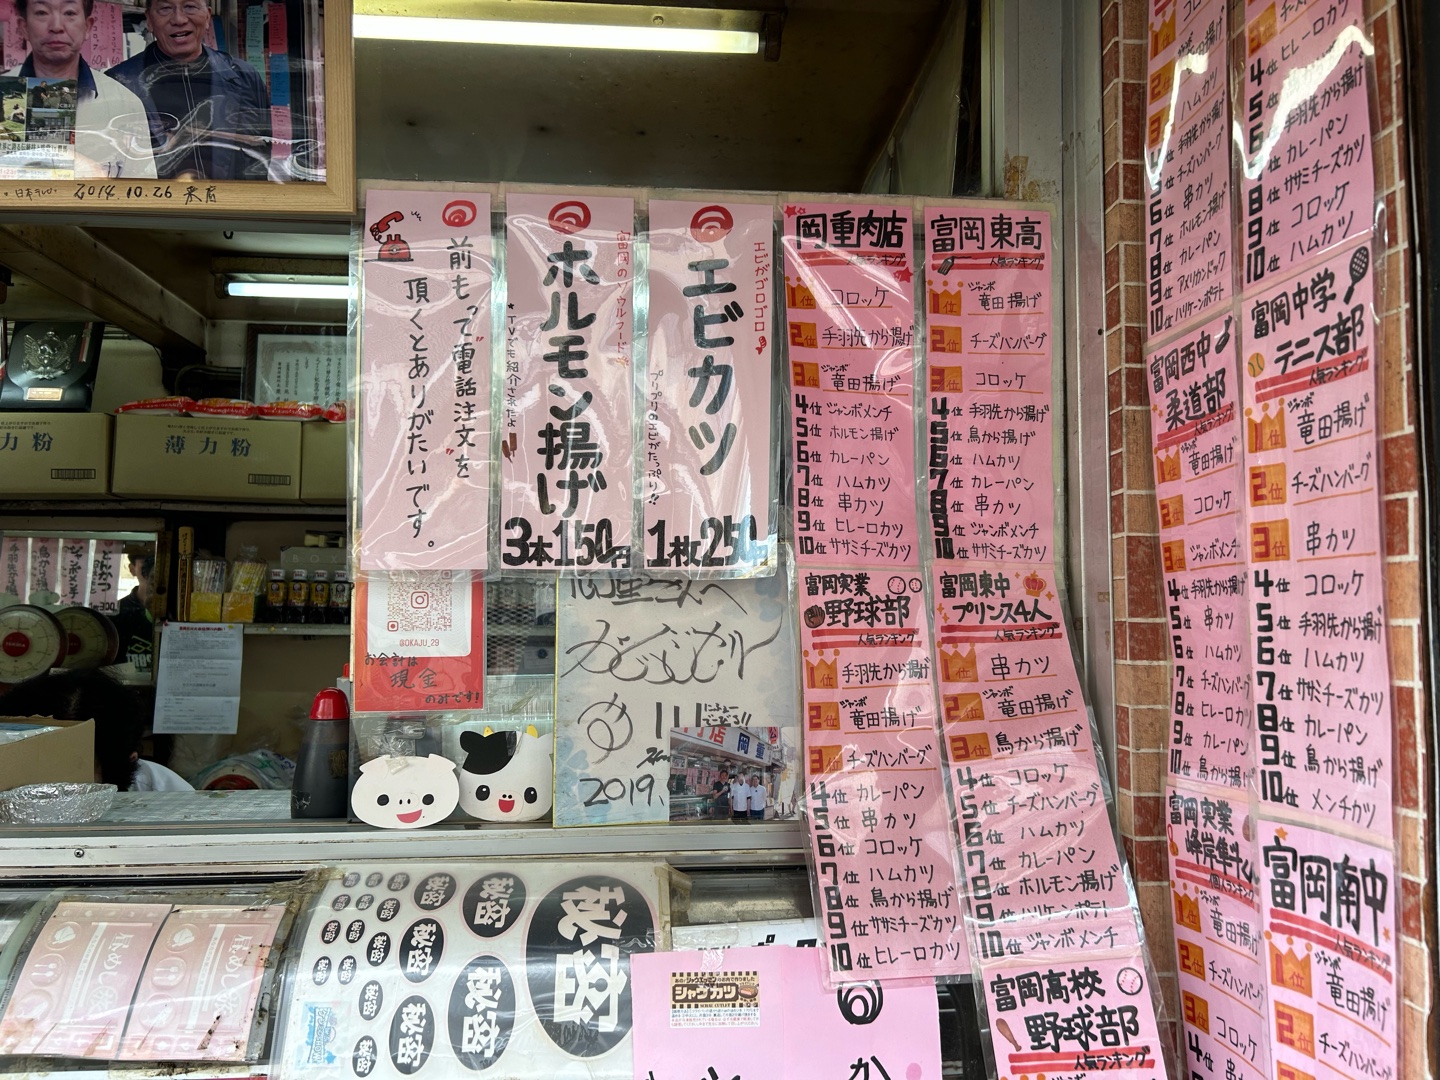 2014.10.26 来店
前もって"電話注文"を
頂くとありがたいです。
富岡のソウルフード
ホルモン揚げ
★TVでも紹介されたよ
3本150円
エビがゴロゴロ
エビカツ
プリプリのエビがたっぷり!!
1枚250円
岡重肉店
人気ランキング
1位 コロッケ
2位 手羽先から揚げ
3位 竜田揚げ
4位 ジャンボメンチ
5位 ホルモン揚げ
6位 カレーパン
7位 ハムカツ
8位 串カツ
9位 ヒレーロカツ
10位 ササミチーズカツ
富岡東高
人気ランキング
1位 ジャンボ竜田揚げ
2位 チーズハンバーグ
3位 コロッケ
4位 手羽先から揚げ
5位 鳥から揚げ
6位 ハムカツ
7位 カレーパン
8位 串カツ
9位 ジャンボメンチ
10位 ササミチーズカツ
富岡実業
野球部
人気ランキング
1位 手羽先から揚げ
2位 ジャンボ竜田揚げ
3位 チーズハンバーグ
4位 カレーパン
5位 串カツ
6位 コロッケ
7位 ハムカツ
8位 鳥から揚げ
9位 ササミチーズカツ
10位 ヒレーロカツ
富岡東中
プリンス4人
人気ランキング
1位 串カツ
2位 ジャンボ竜田揚げ
3位 鳥から揚げ
4位 コロッケ
5位 チーズハンバーグ
6位 ハムカツ
7位 カレーパン
8位 ホルモン揚げ
9位 ハリケーンポテト
10位 ジャンボメンチ
富岡高校
野球部
人気ランキング
1位 ジャンボ竜田揚げ
2位 ハムカツ
3位 手羽先から揚げ
4位 チーズハンバーグ
5位 串カツ
6位 ホルモン揚げ
7位 カレーパン
8位 アメリカンドック
10位 ハリケーンポテト
富岡西中
柔道部
人気ランキング
1位 ジャンボ竜田揚げ
2位 コロッケ
3位 ジャンボメンチ
4位 手羽先から揚げ
5位 串カツ
6位 ハムカツ
7位 チーズハンバーグ
8位 ヒレーロカツ
9位 カレーパン
10位 鳥から揚げ
富岡実業
峰岸隼斗くん
個人ランキング
1位 ジャンボ竜田揚げ
2位 チーズハンバーグ
3位 コロッケ
4位 串カツ
4位 ヒレーロカツ
5位 手羽先から揚げ
6位 カレーパン
8位 ササミチーズカツ
9位 コロッケ
10位 ハムカツ
富岡中学
テニス部
人気ランキング
1位 ジャンボ竜田揚げ
2位 チーズハンバーグ
3位 串カツ
4位 コロッケ
5位 手羽先から揚げ
6位 ハムカツ
7位 ササミチーズカツ
8位 カレーパン
9位 鳥から揚げ
10位 メンチカツ
富岡南中
人気ランキング
1位 ジャンボ竜田揚げ
2位 チーズハンバーグ
薄力粉
力粉
@OKAJU_29
お会計は
現金
のみです!
2019.
秘密
シャウカツ